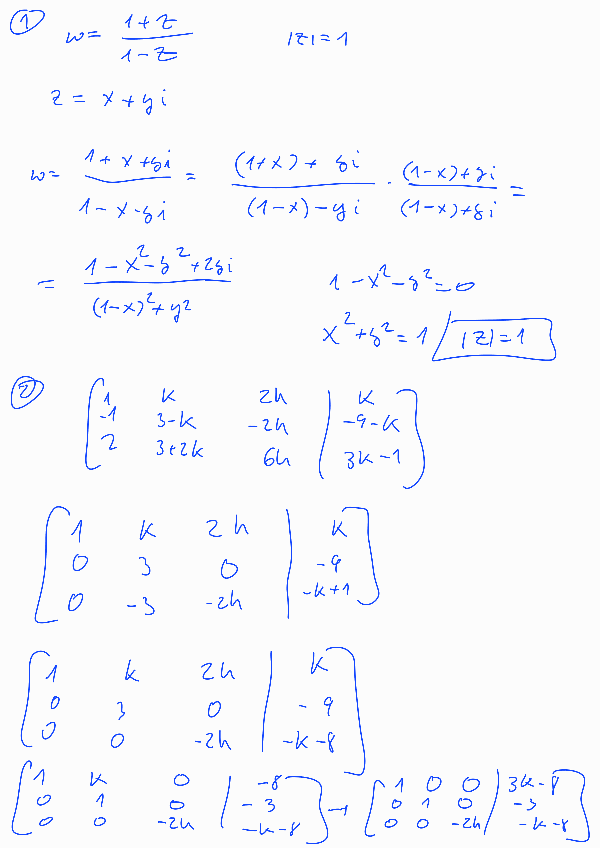 ① w = (1+z)/(1-z) |z|=1
z = x+yi
w = (1+x+yi)/(1-x-yi) = ((1+x)+yi)/((1-x)-yi) · ((1-x)+yi)/((1-x)+yi) =
= (1-x²-y²+2yi)/((1-x)²+y²) 1-x²-y²=0
x²+y²=1 / |z|=1
②
[ 1 k 2h | k
-1 3-k -2h | -9-k
2 3+2k 6h | 3k-1 ]
[ 1 k 2h | k
0 3 0 | -9
0 -3 -2h | -k+1 ]
[ 1 k 2h | k
0 3 0 | -9
0 0 -2h | -k-8 ]
[ 1 k 0 | -8
0 1 0 | -3
0 0 -2h | -k-8 ] → [ 1 0 0 | 3k-8
0 1 0 | -3
0 0 -2h | -k-8 ]